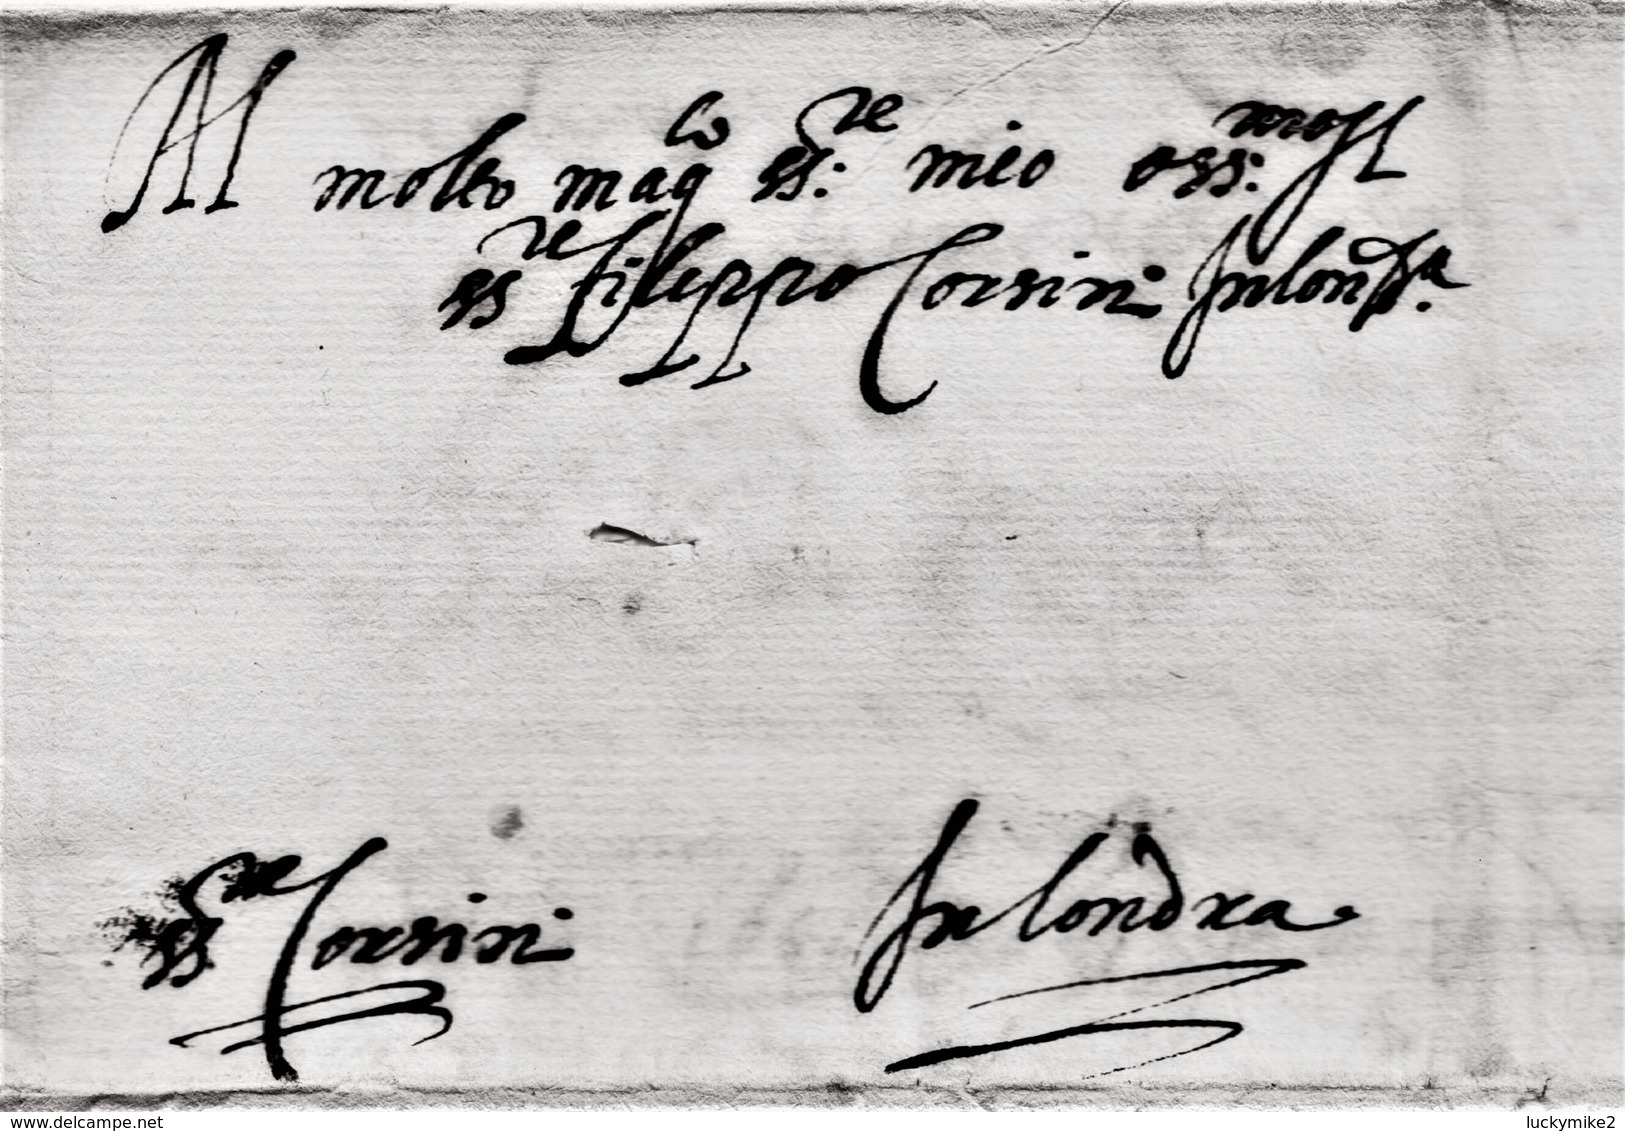 Al molto mag.co ss.re mio oss.mo
ss.re filippo Corsini In londra
ss.re Corsini
In londra
delcampe.net
luckymike2